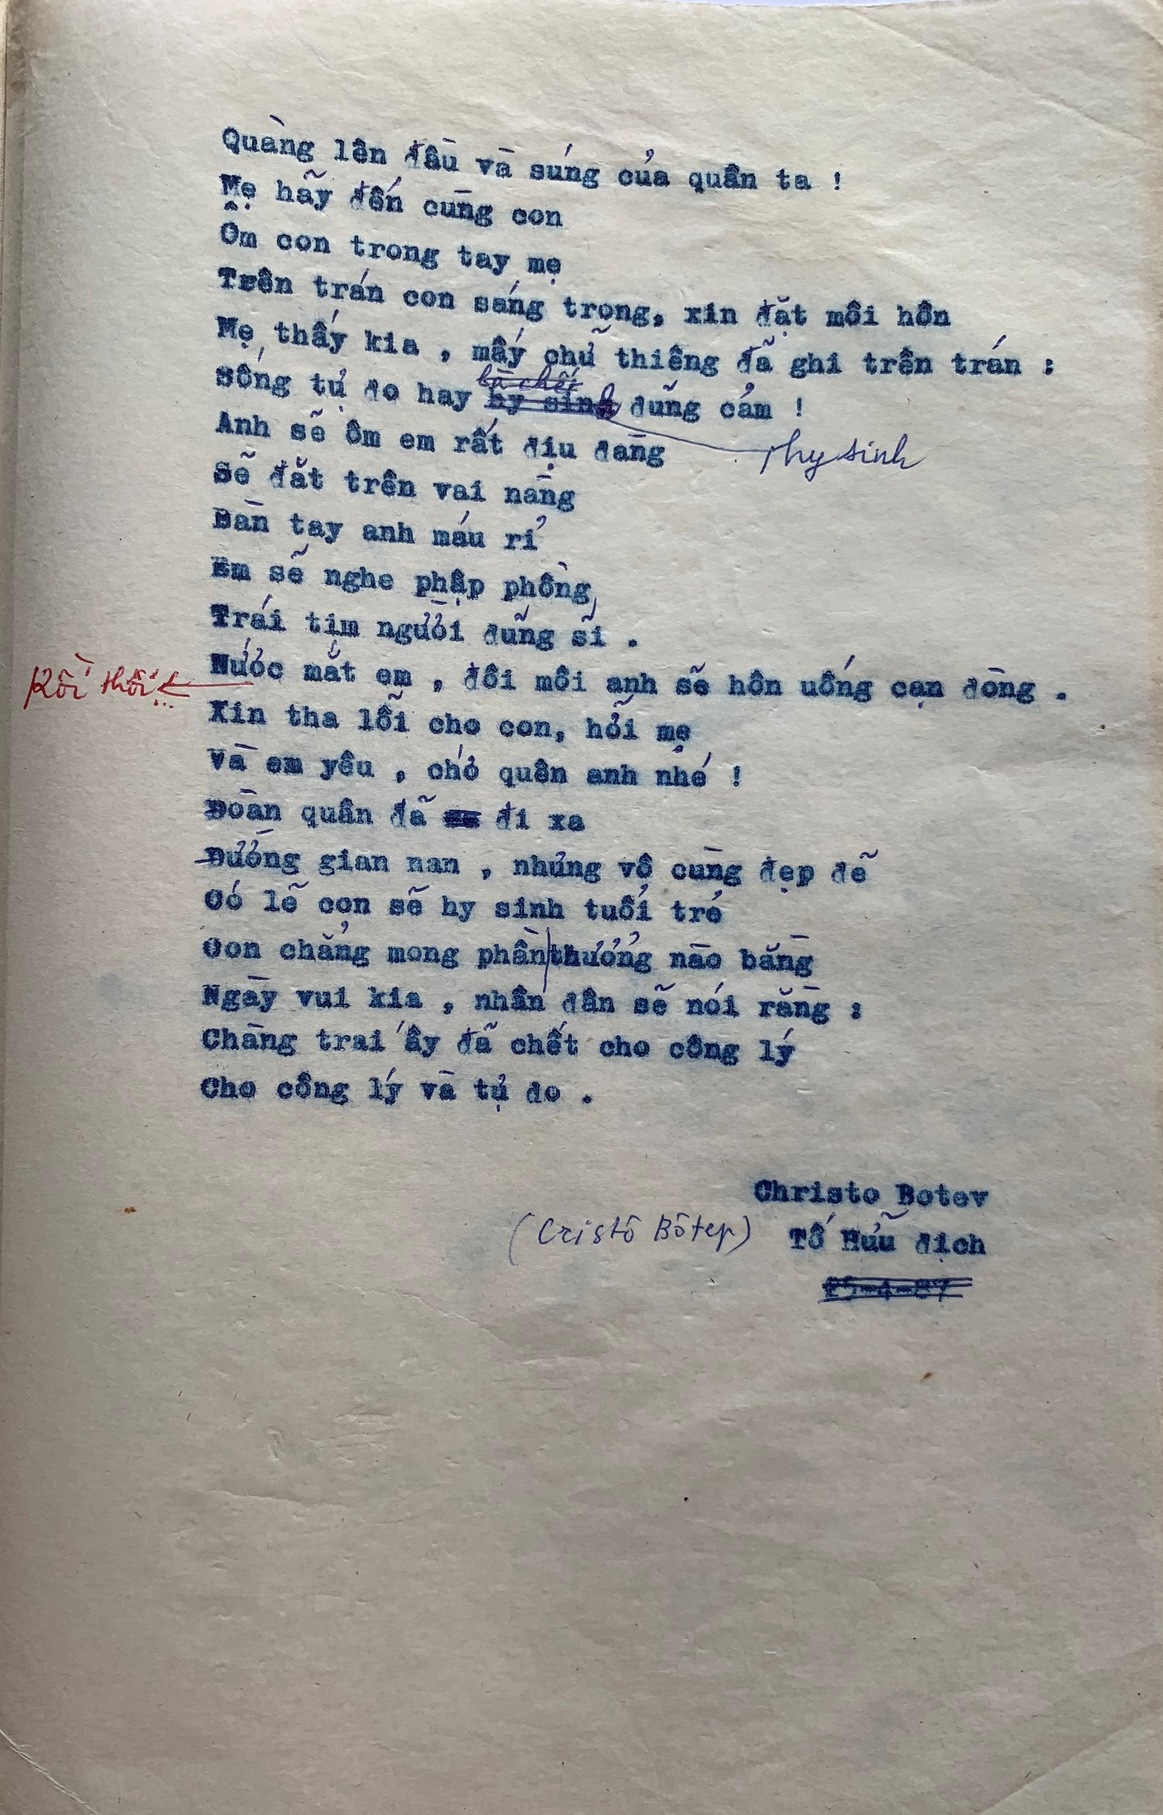 Quàng lên đầu và súng của quân ta !
Mẹ hãy đến cùng con
Ôm con trong tay mẹ
Trên trán con sáng trong, xin đặt môi hôn
Mẹ thấy kia , mấy chữ thiêng đã ghi trên trán :
là chết
Sống tự do hay hy sinh dũng cảm !
hy sinh
Anh sẽ ôm em rất dịu dàng
Sẽ đặt trên vai nàng
Bàn tay anh máu rỉ
Em sẽ nghe phập phồng
Trái tim người dũng sĩ .
Rồi thôi...
Nước mắt em , đôi môi anh sẽ hôn uống cạn dòng .
Xin tha lỗi cho con, hỡi mẹ
Và em yêu , chớ quên anh nhé !
Đoàn quân đã đi xa
Đường gian nan , nhưng vô cùng đẹp đẽ
Có lẽ con sẽ hy sinh tuổi trẻ
Con chẳng mong phần thưởng nào bằng
Ngày vui kia , nhân dân sẽ nói rằng :
Chàng trai ấy đã chết cho công lý
Cho công lý và tự do .
Christo Botev
(Cristô Bôtep) Tố Hữu dịch
25-4-87